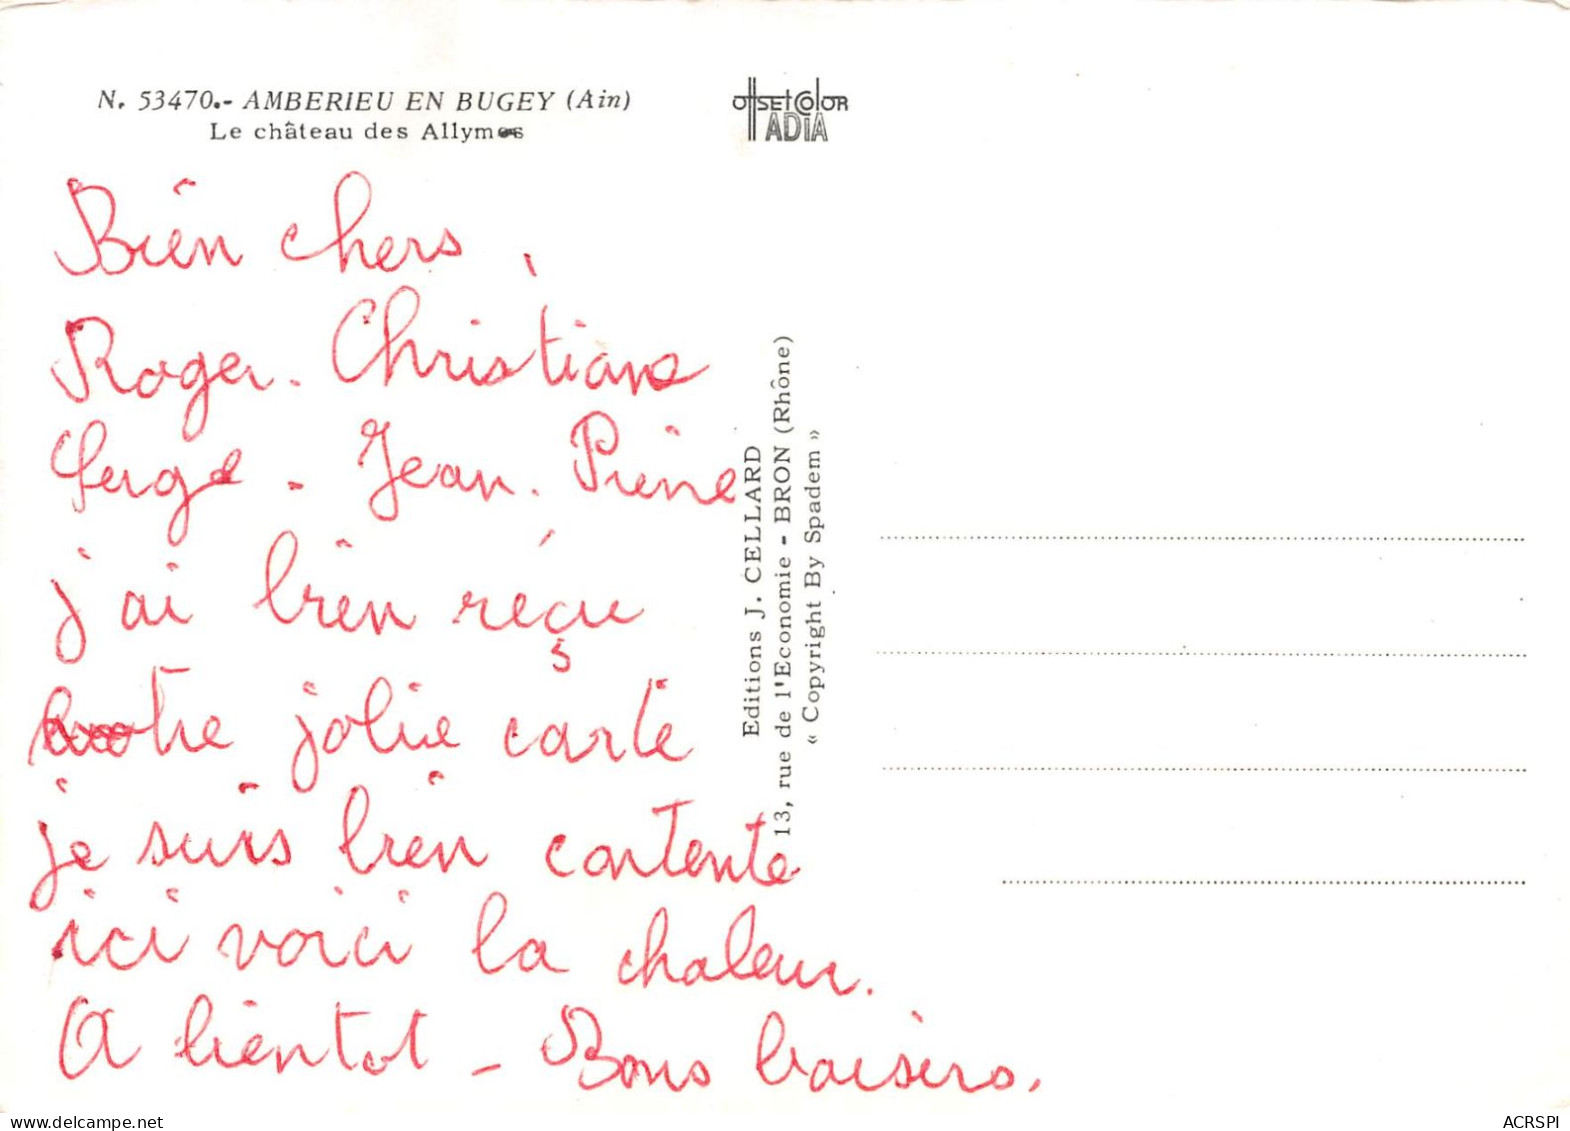 N. 53470.- AMBERIEU EN BUGEY (Ain)
Le château des Allymes
offsetcolor
ADIA
Bien chers,
Roger. Christiane
Serge - Jean. Pierre
j'ai bien réçu
votre jolie carte
je suis bien contente
ici voici la chaleur.
A bientot - Bons baisers.
Editions J. CELLARD
13, rue de l'Economie - BRON (Rhône)
« Copyright By Spadem »
www.delcampe.net
ACRSPI